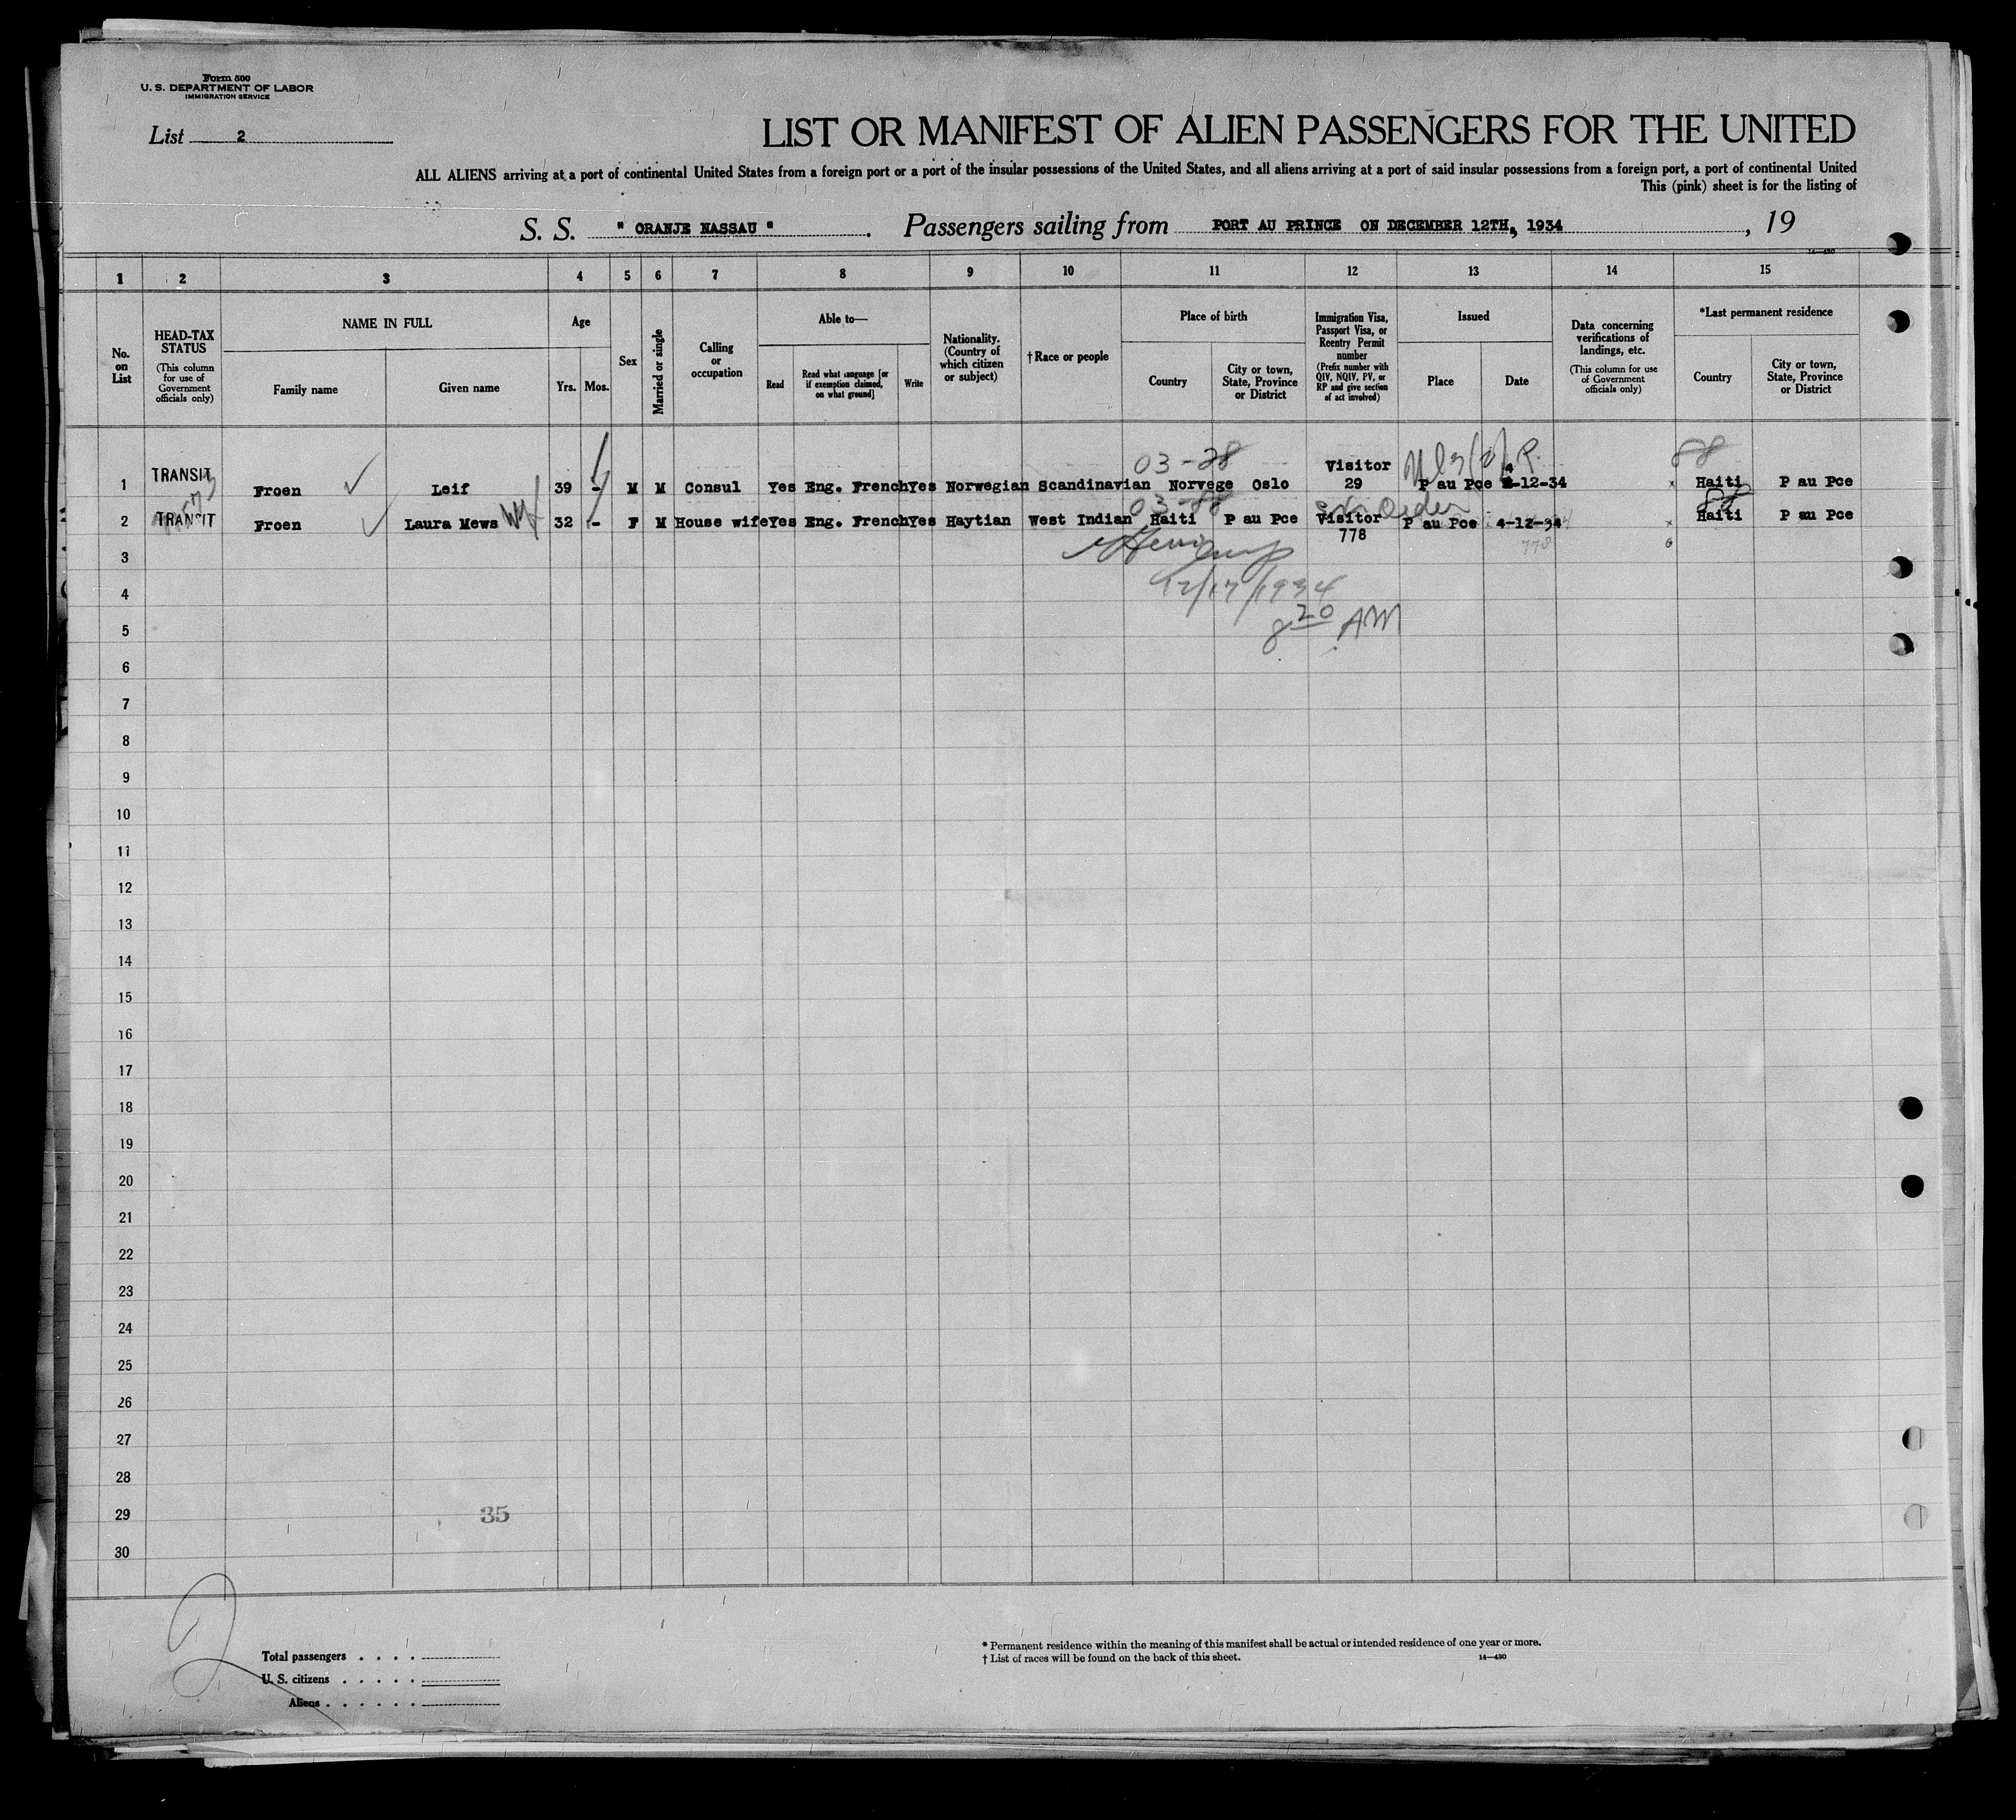 Form 500
U. S. DEPARTMENT OF LABOR
IMMIGRATION SERVICE
List 2
LIST OR MANIFEST OF ALIEN PASSENGERS FOR THE UNITED
ALL ALIENS arriving at a port of continental United States from a foreign port or a port of the insular possessions of the United States, and all aliens arriving at a port of said insular possessions from a foreign port, a port of continental United
This (pink) sheet is for the listing of
S. S. " ORANJE NASSAU " . Passengers sailing from PORT AU PRINCE ON DECEMBER 12TH, 1934 , 19
14—430
1 2 3 4 5 6 7 8 9 10 11 12 13 14 15
No. on List
HEAD-TAX STATUS
(This column for use of Government officials only)
NAME IN FULL
Family name
Given name
Age
Yrs. Mos.
Sex
Married or single
Calling or occupation
Able to—
Read
Read what language [or if exemption claimed, on what ground]
Write
Nationality. (Country of which citizen or subject)
†Race or people
Place of birth
Country
City or town, State, Province or District
Immigration Visa, Passport Visa, or Reentry Permit number
(Prefix number with QIV, NQIV, PV, or RP and give section of act involved)
Issued
Place
Date
Data concerning verifications of landings, etc.
(This column for use of Government officials only)
*Last permanent residence
Country
City or town, State, Province or District
03-28
88
1 TRANSIT Froen Leif 39 - M M Consul Yes Eng. French Yes Norwegian Scandinavian Norvege Oslo Visitor 29 P au Pce 4-12-34 Haiti P au Pce
03-88
88
2 TRANSIT Froen Laura Mews Wf 32 - F M House wife Yes Eng. French Yes Haytian West Indian Haiti P au Pce Visitor 778 P au Pce 4-12-34 Haiti P au Pce
778
3
12/17/1934
4
8 20 AM
5
6
7
8
9
10
11
12
13
14
15
16
17
18
19
20
21
22
23
24
25
26
27
28
29
35
30
2
Total passengers . . . .
U. S. citizens . . . . .
Aliens . . . . . .
* Permanent residence within the meaning of this manifest shall be actual or intended residence of one year or more.
† List of races will be found on the back of this sheet.
14—430